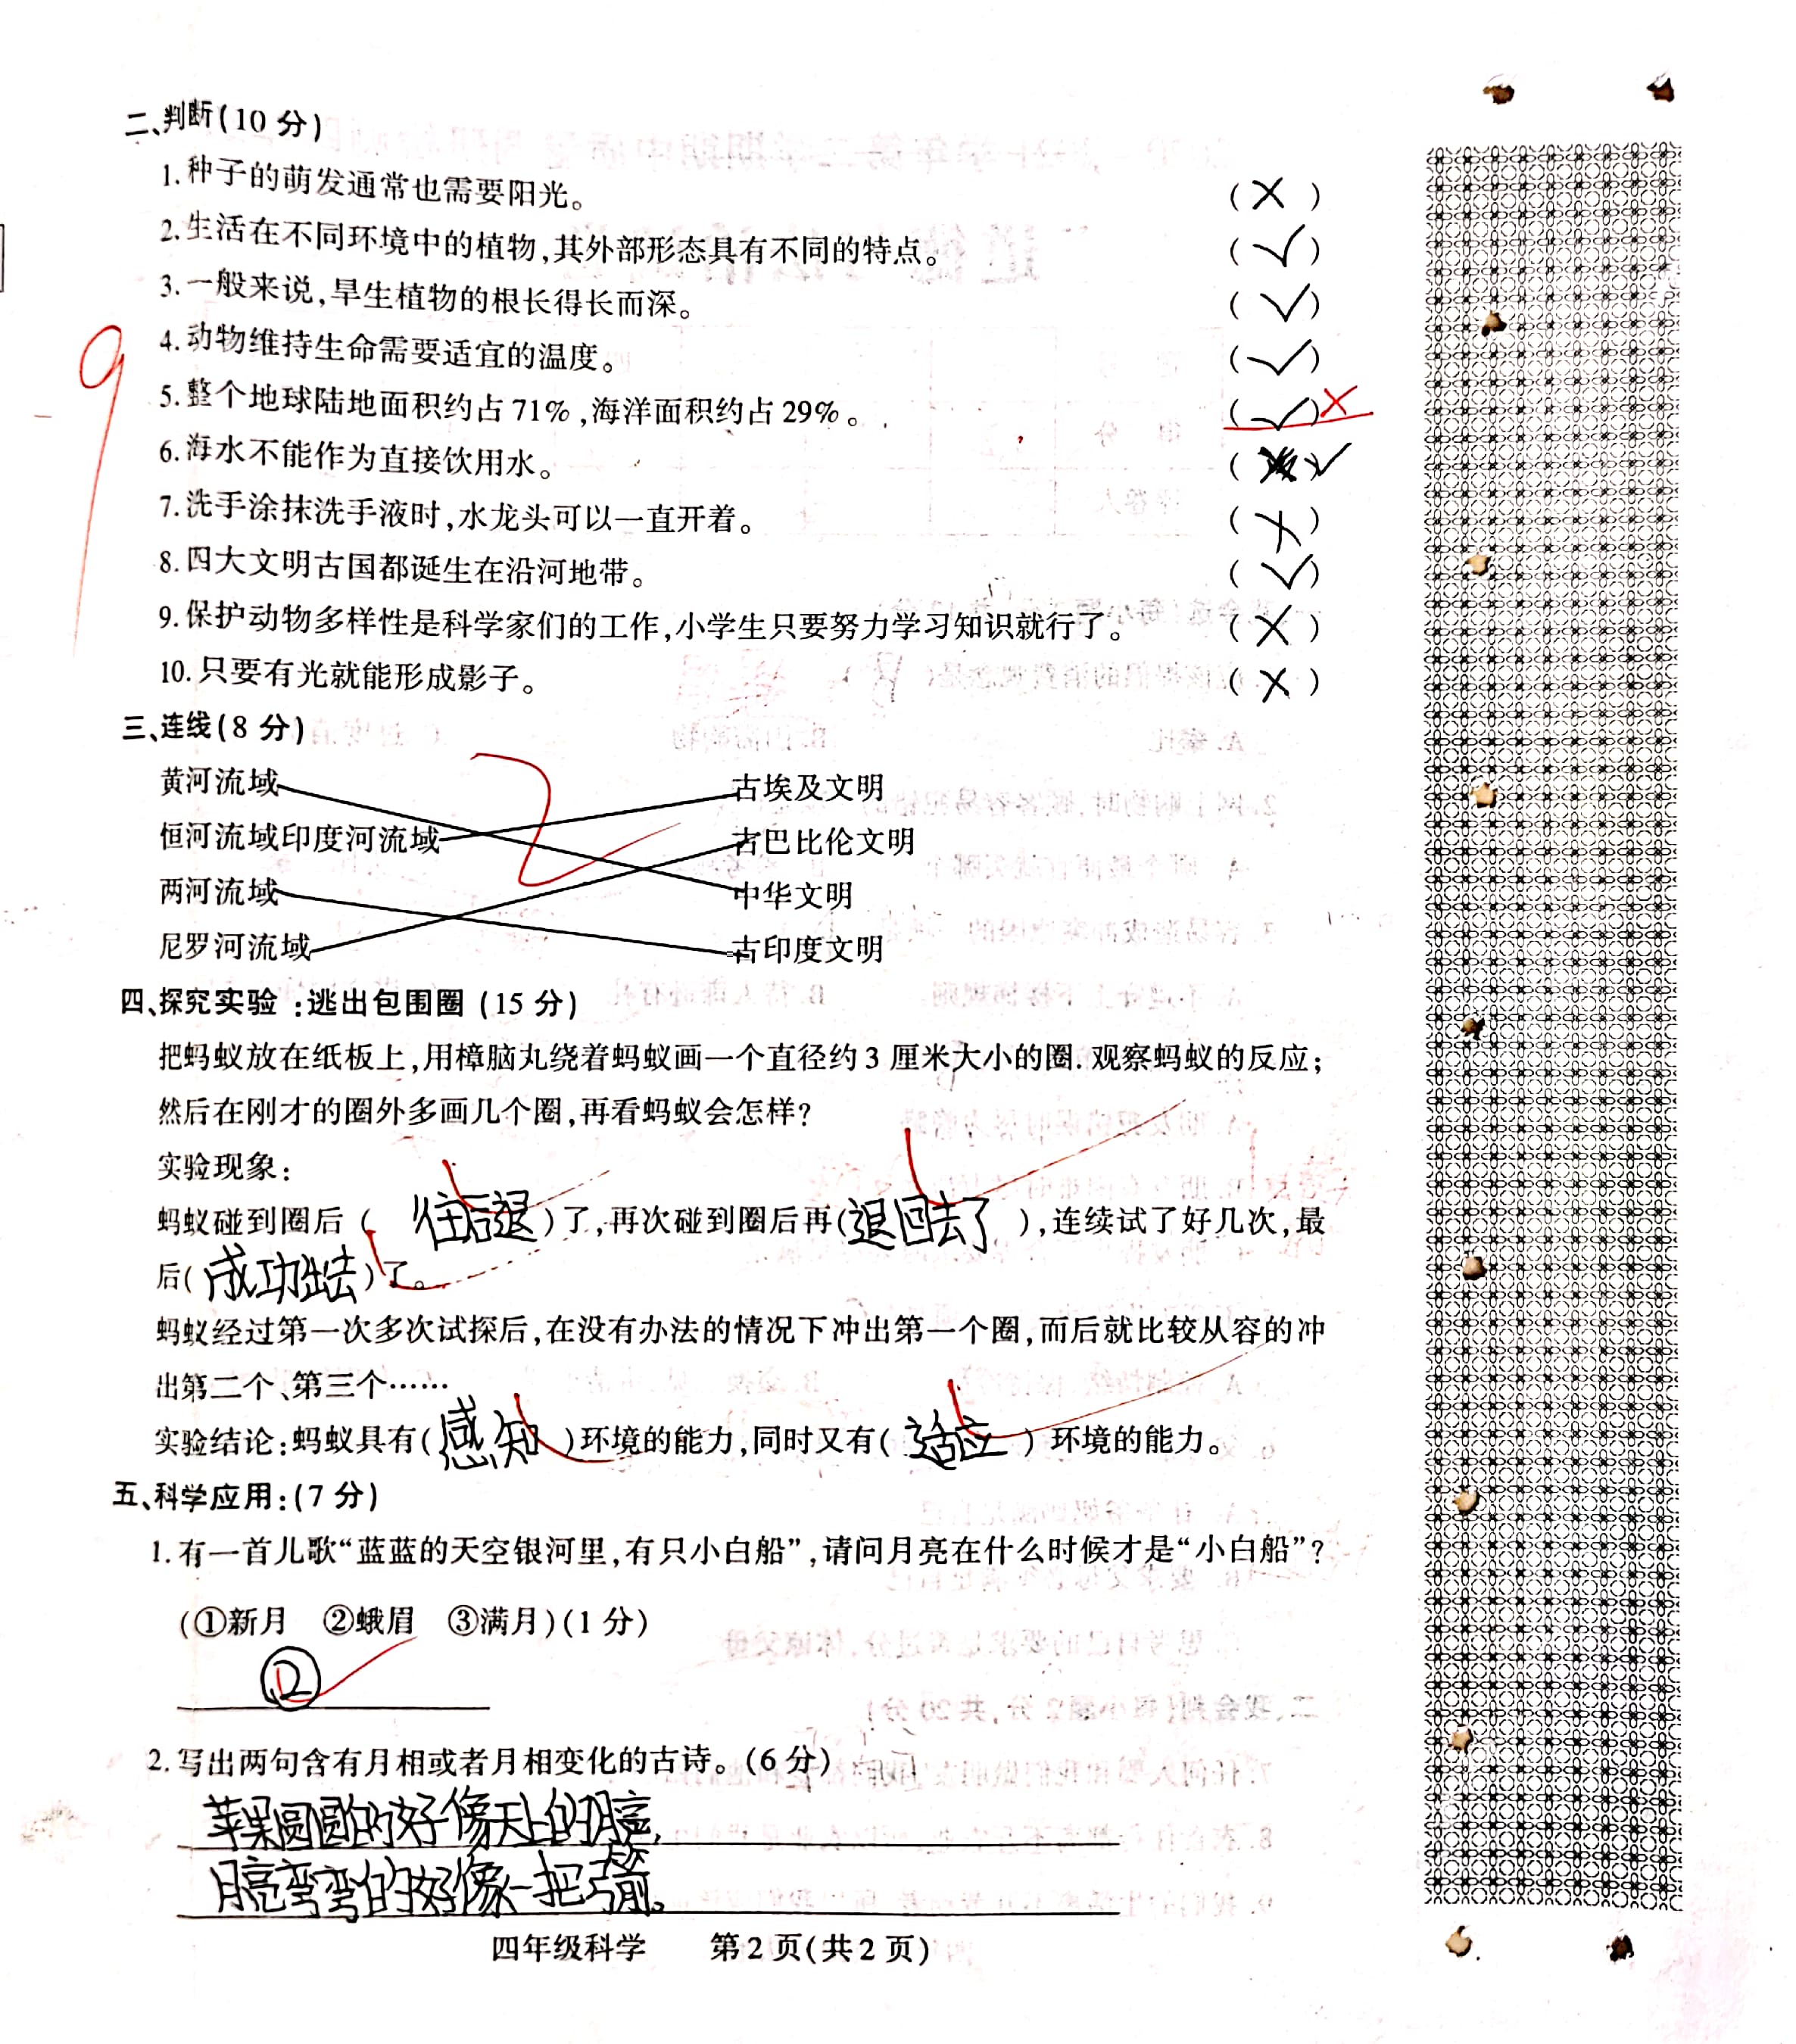 二、判断(10 分)
1.种子的萌发通常也需要阳光。 (×)
2.生活在不同环境中的植物,其外部形态具有不同的特点。 (√)
3.一般来说,旱生植物的根长得长而深。 (√)
4.动物维持生命需要适宜的温度。 (√)
5.整个地球陆地面积约占 71%,海洋面积约占 29%。 (√)×
6.海水不能作为直接饮用水。 ( )√
7.洗手涂抹洗手液时,水龙头可以一直开着。 (×)
8.四大文明古国都诞生在沿河地带。 (√)
9.保护动物多样性是科学家们的工作,小学生只要努力学习知识就行了。 (×)
10.只要有光就能形成影子。 (×)
9
三、连线(8 分)
黄河流域 古埃及文明
恒河流域印度河流域 古巴比伦文明
两河流域 中华文明
尼罗河流域 古印度文明
2
四、探究实验:逃出包围圈 (15 分)
把蚂蚁放在纸板上,用樟脑丸绕着蚂蚁画一个直径约 3 厘米大小的圈.观察蚂蚁的反应;
然后在刚才的圈外多画几个圈,再看蚂蚁会怎样?
实验现象:
蚂蚁碰到圈后(往后退)了,再次碰到圈后再(退回去了),连续试了好几次,最
后(成功出去)了。
蚂蚁经过第一次多次试探后,在没有办法的情况下冲出第一个圈,而后就比较从容的冲
出第二个、第三个……
实验结论:蚂蚁具有(感知)环境的能力,同时又有(适应)环境的能力。
五、科学应用:(7 分)
1.有一首儿歌“蓝蓝的天空银河里,有只小白船”,请问月亮在什么时候才是“小白船”?
(①新月 ②蛾眉 ③满月)(1 分)
②
2.写出两句含有月相或者月相变化的古诗。(6 分)
苹果圆圆的好像天上的月亮,
月亮弯弯的好像一把弓箭。
四年级科学 第 2 页(共 2 页)